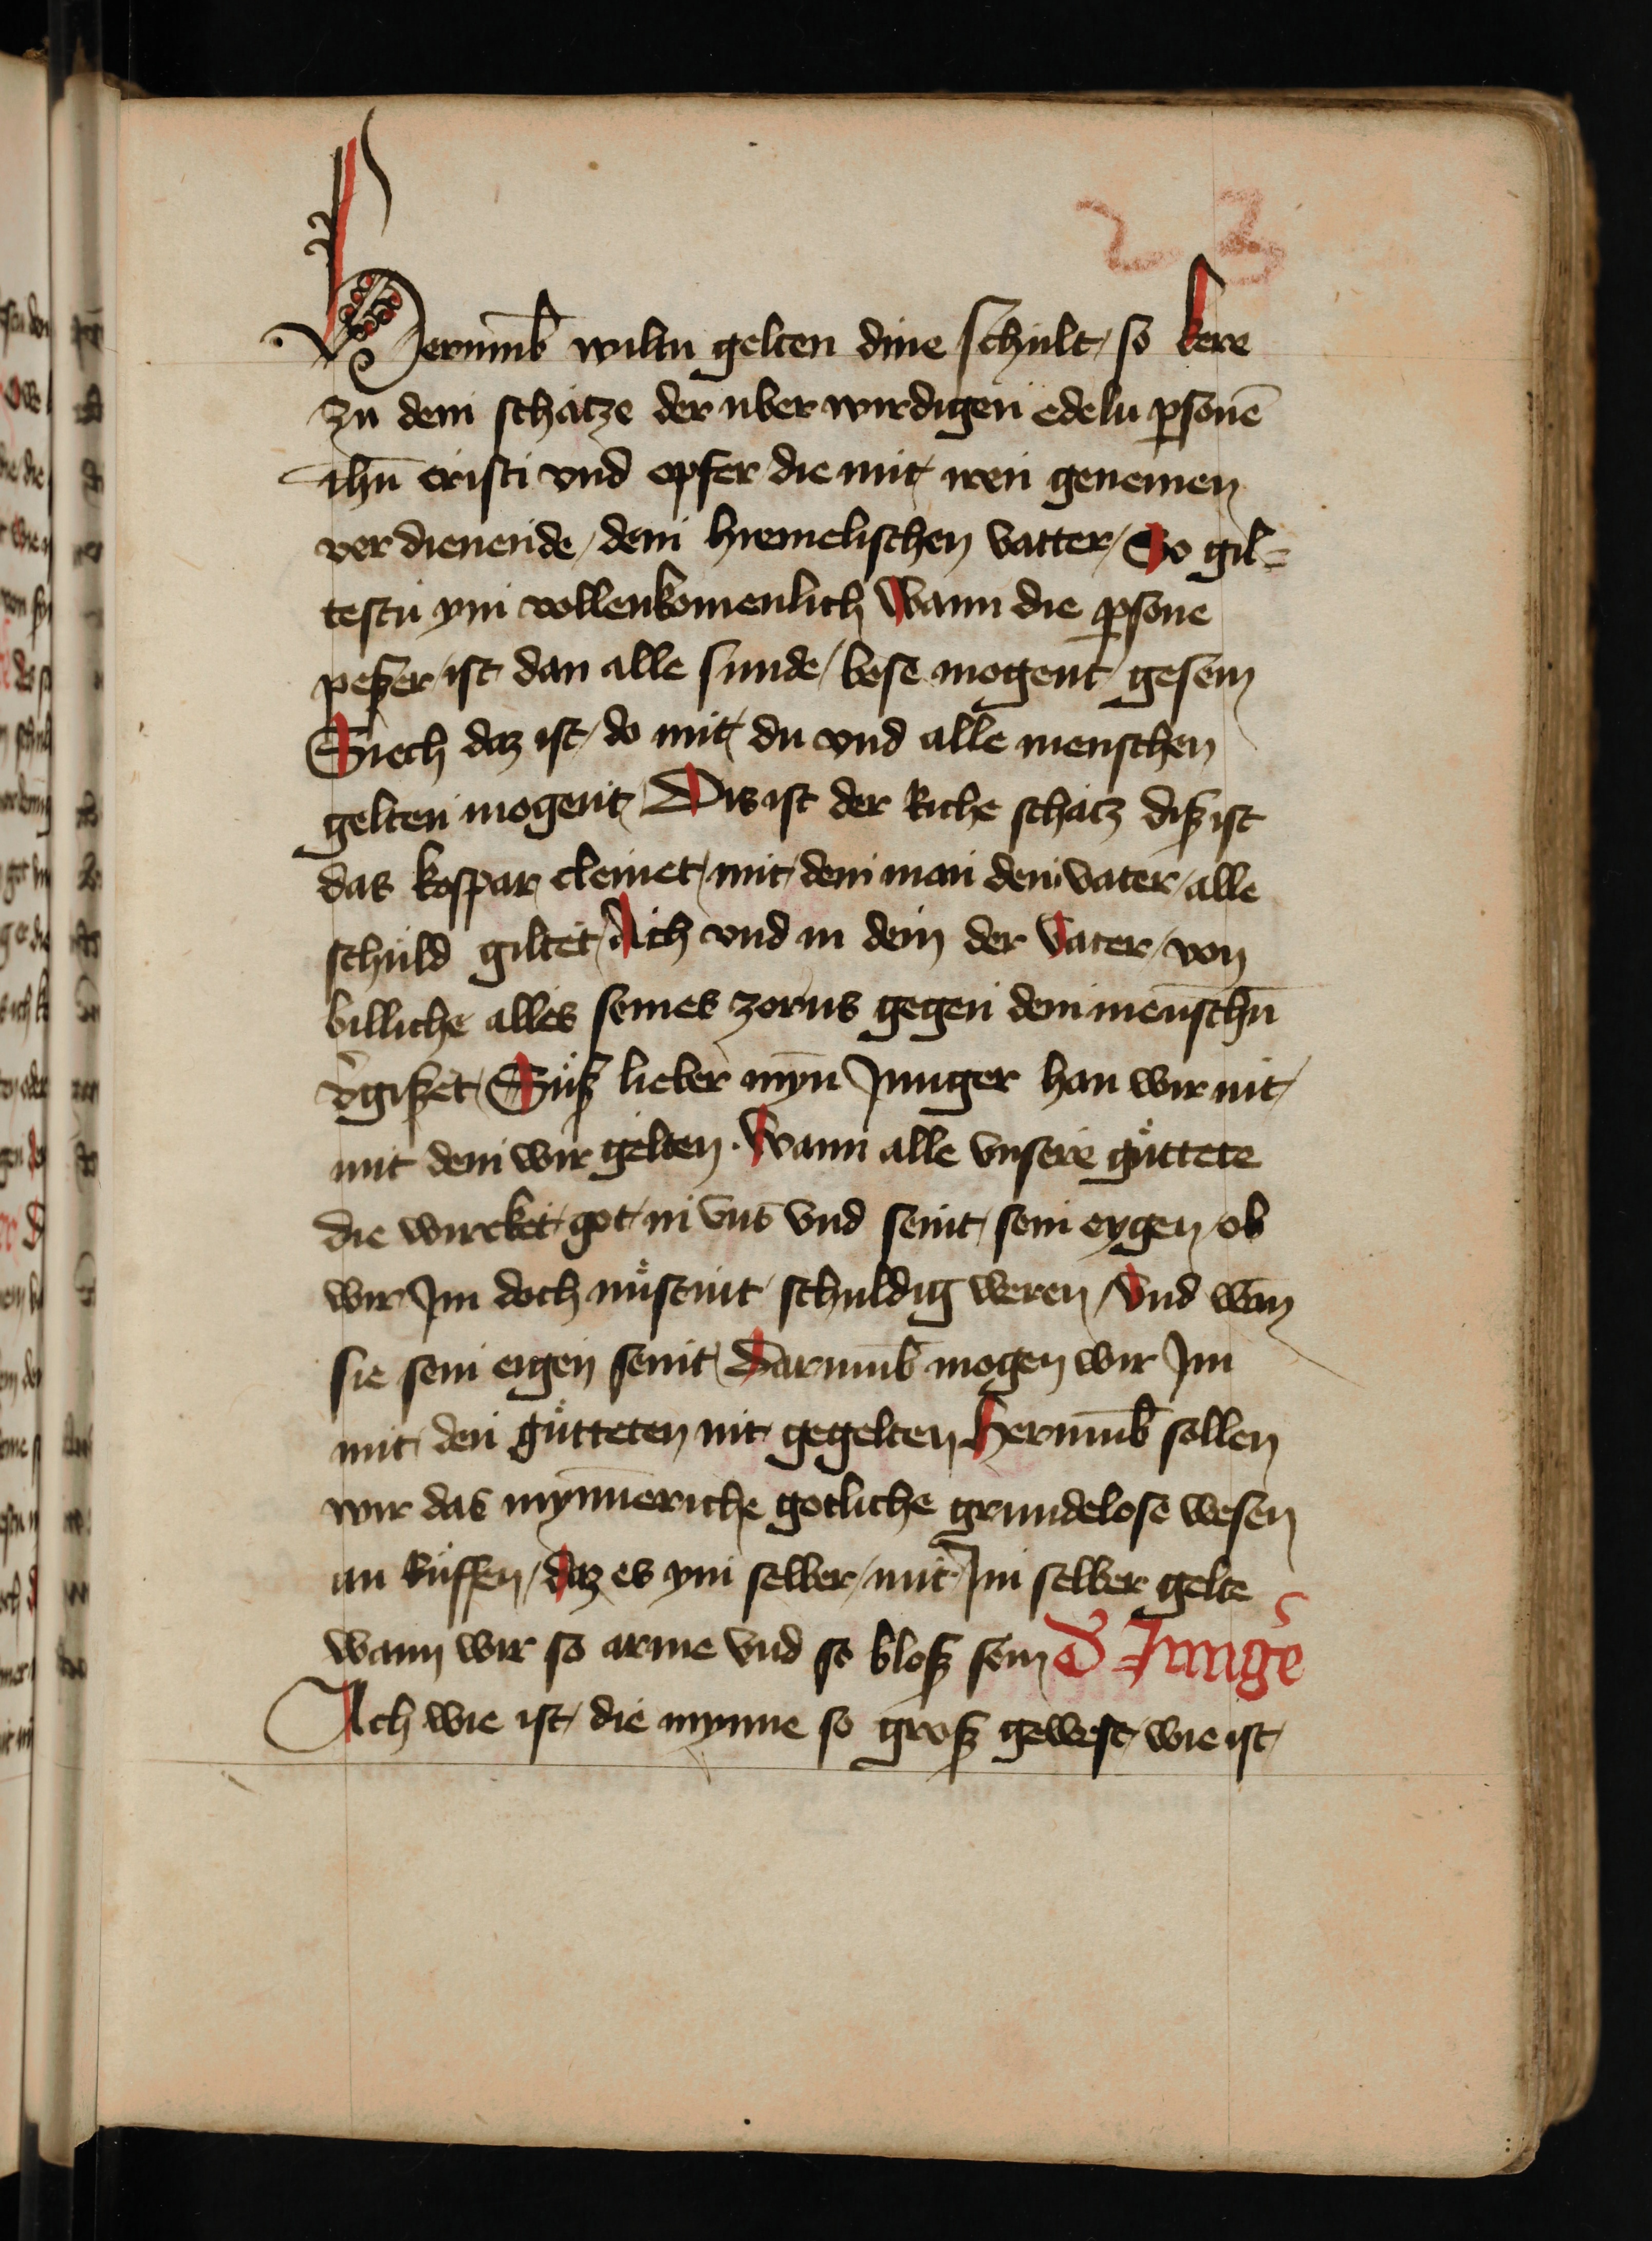 23
Herumb wiltu gelten dine schult, so kere
zu dem schatze der uber wirdigen edeln psonē
ihū cristi vnd opfer die mit iren genemen
verdienende, dem hiemelischen vatter, So gil=
testu ym vollenkomenlich Wann die psone
peßer ist dan alle sunde, bese mogent gesein
Siech daz ist, do mit du vnd alle menschen
gelten mogent, Dis ist der Riche schatz diß ist
das kospar cleinet, mit dem man dem vater, alle
schuld giltet, Ach vnd in dem der Vater, von
billiche alles seines zorns gegen dem menschn̄
v̄gißet, Suͦß lieber myn̄ Junger han wir nit,
mit dem wir gelten. Wann alle vnsere guͦttete
die wircket got, in vns vnd seint, sein eygen, ob
wir Jm doch nuͦstnit schuldig weren, Vnd wan̄
sie sein eigen seint, Darumb mogen wir Jm
mit den guͦtteten nit gegelten Herumb sollen
wir das mynneriche gotliche grundelose wesen
an Ruͦffen, daz es ym selber, mit Jm selber gelte
wann wir so arme vnd so bloß sein d' Junge'
Ach wie ist, die mynne so groß gewest, wie ist,